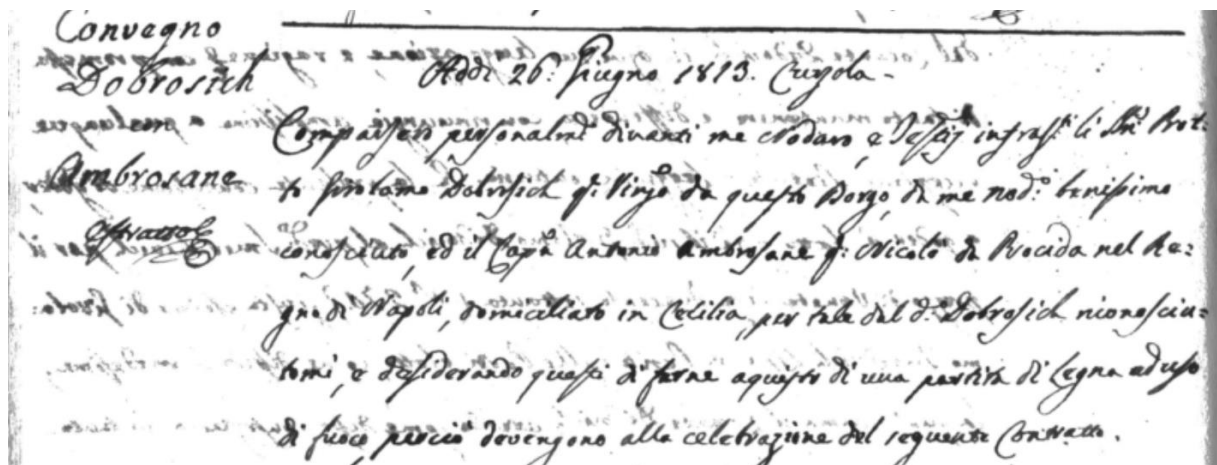 Convegno
Dobrosich
con
Ambrosane
Estratto
Addi 26. Giugno 1813. Curzola.
Comparsero personalmte divanti me Nodaro, e Testij infrasti li Sri Prot:
to Girolamo Dobrosich q: Vinzo da questo Borgo, da me nodo benissimo
conosciuto, ed il Capn Antonio Ambrosane q: Nicolò da Procida nel Re:
gno di Napoli, domiciliato in Cecilia, per tale dal do Dobrosich riconosciu:
tomi, e desiderando questi di farne aquisto di una partita di Legna ad uso
di fuoco, perciò devengono alla celebrazione del seguente Contratto.